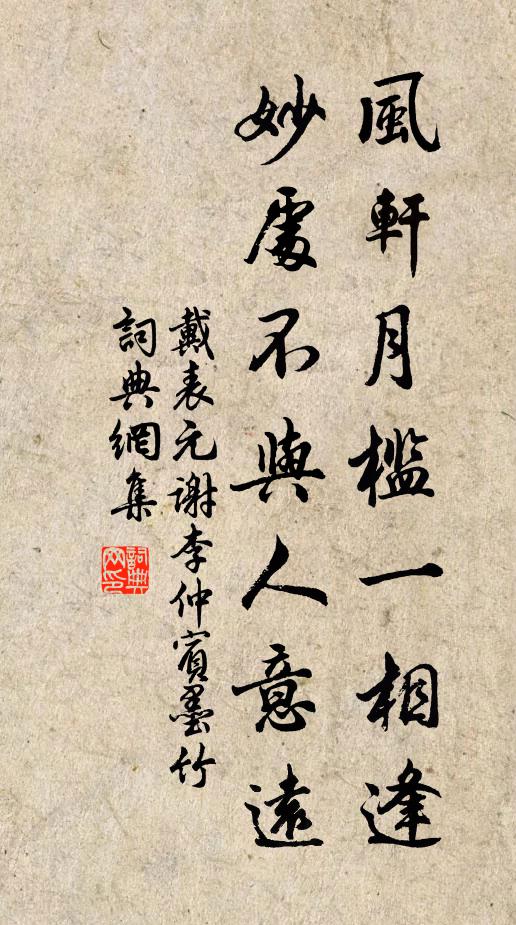 風軒月檻一相逢
妙處不與人意遠
戴表元謝李仲賓墨竹
詞典網集
詞典网印